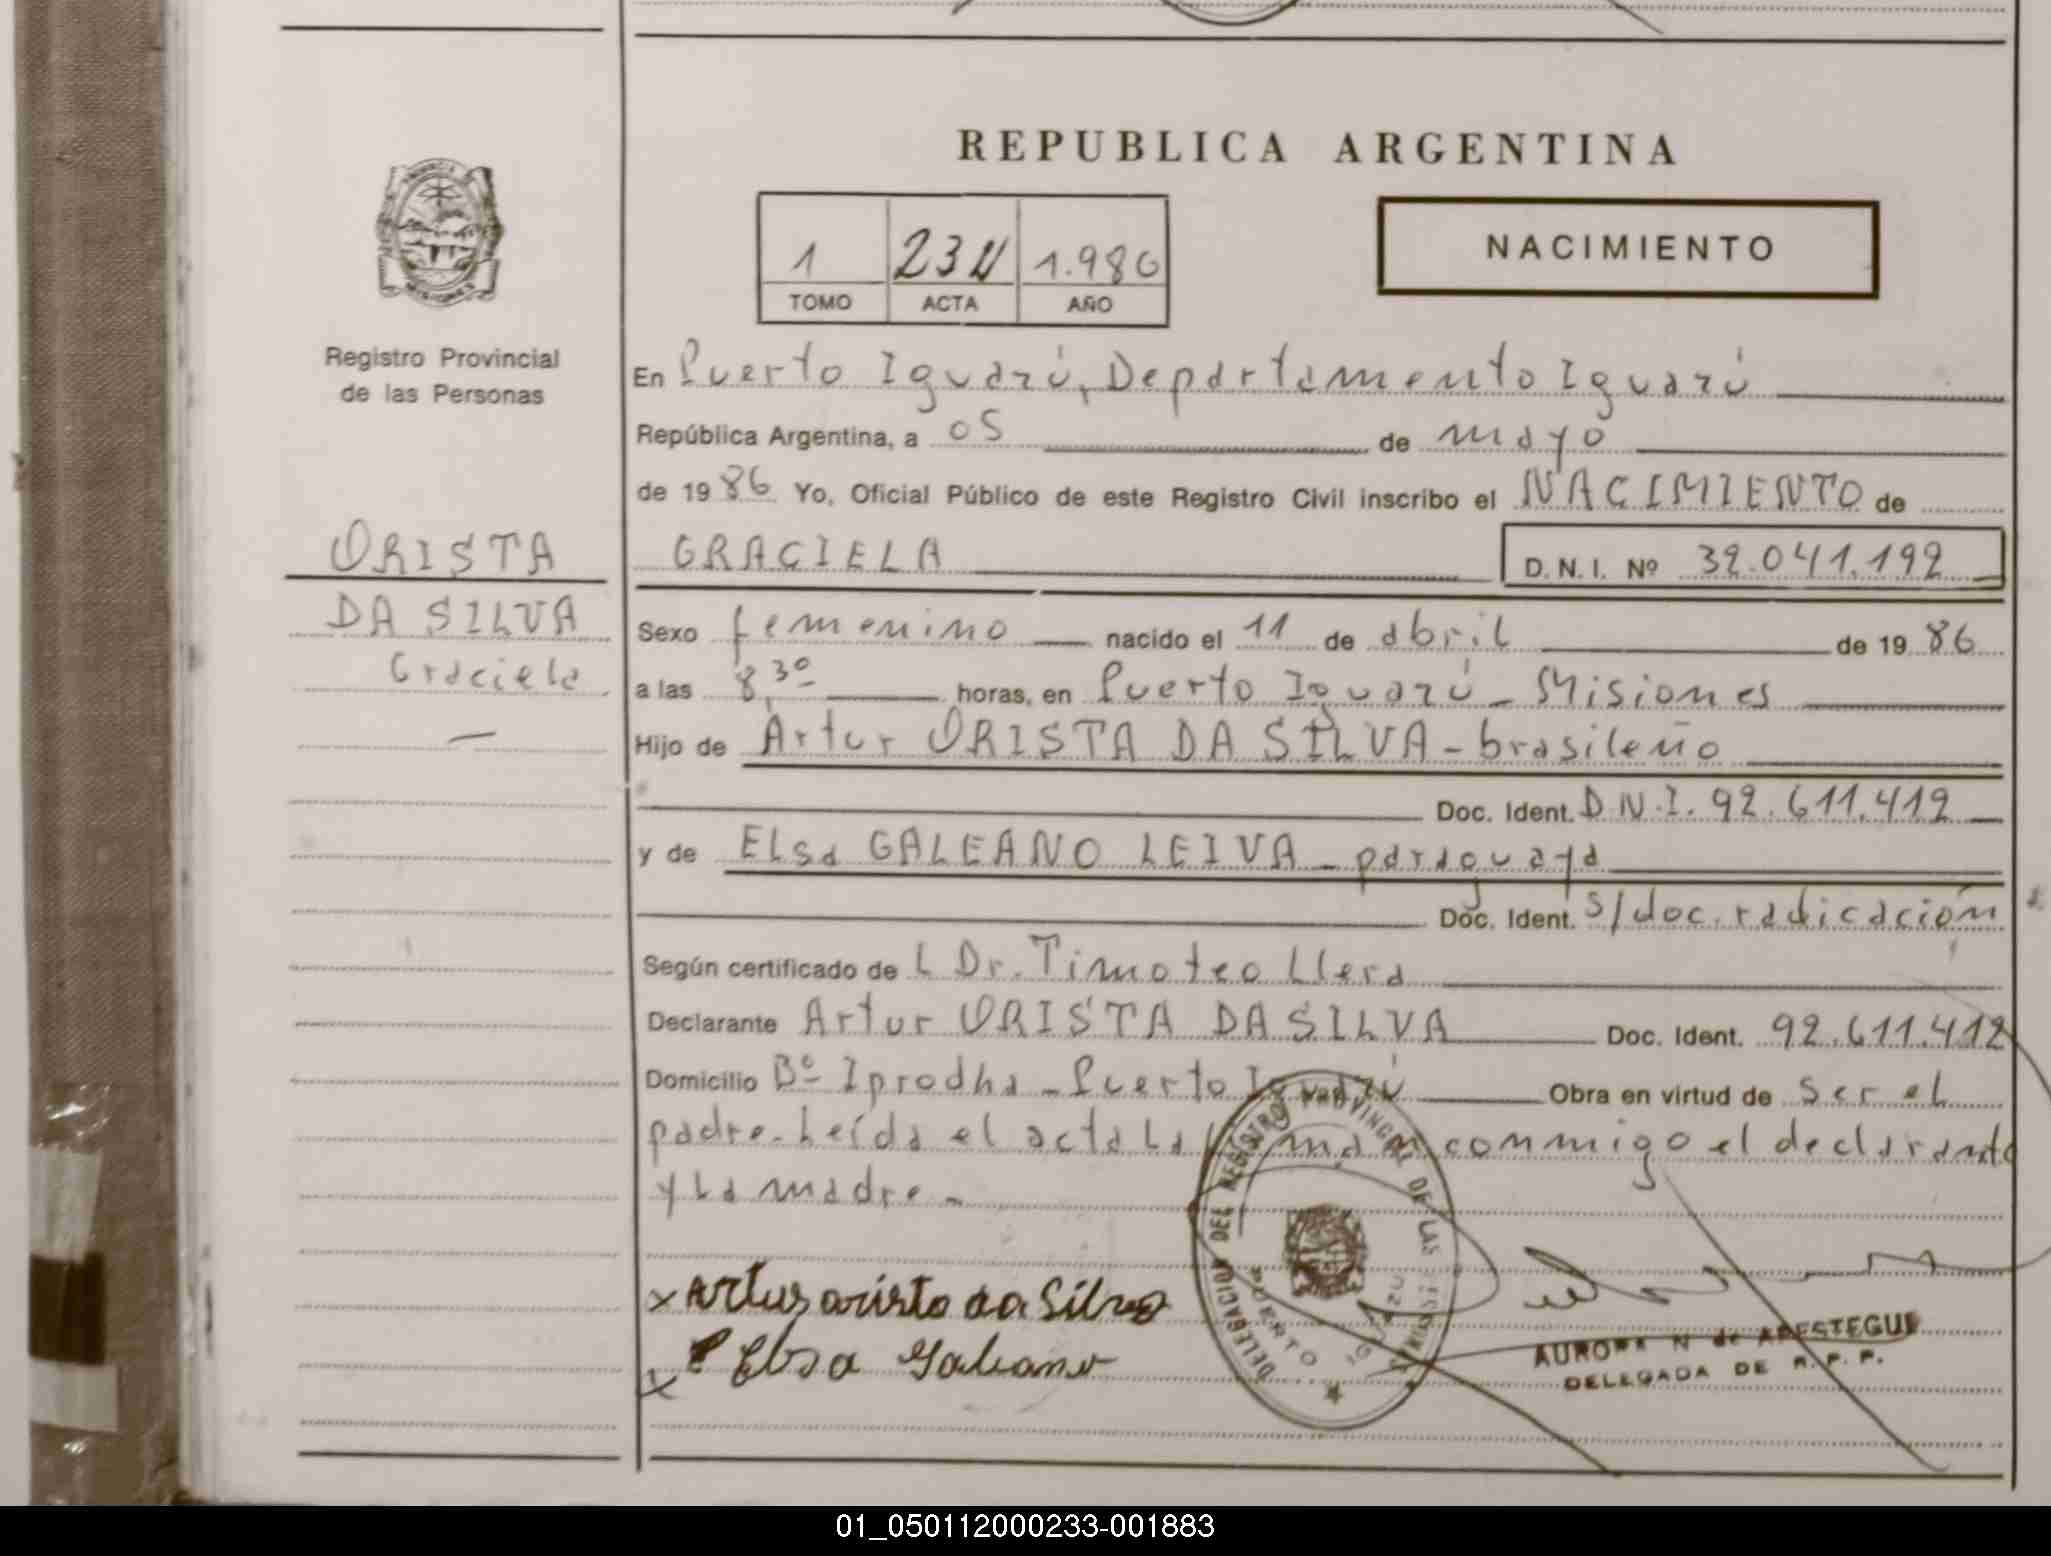 REPUBLICA ARGENTINA
1 1.986
TOMO ACTA AÑO
NACIMIENTO
PROVINCIA DE MISIONES
Registro Provincial
de las Personas
ORISTA
DA SILVA
Graciela
En Puerto Iguazú, Departamento Iguazú
República Argentina, a 05 de mayo
de 1986 Yo, Oficial Público de este Registro Civil inscribo el NACIMIENTO de
GRACIELA D. N. I. Nº 32.041.192
Sexo femenino nacido el 11 de abril de 1986
a las 8,30 horas, en Puerto Iguazú - Misiones
Hijo de Artur ORISTA DA SILVA - brasileño
Doc. Ident. D.N.I. 92.611.412
y de Elsa GALEANO LEIVA - paraguaya
Doc. Ident. s/doc. radicación
Según certificado de l Dr. Timoteo Llera
Declarante Artur ORISTA DA SILVA Doc. Ident. 92.611.412
Domicilio Bº Iprodha - Puerto Iguazú Obra en virtud de ser el
padre. Leída el acta la firman conmigo el declarante
y la madre -
DELEGACION DEL REGISTRO PROVINCIAL DE LAS PERSONAS
PUERTO IGUAZU
x Artur orista da Silva
x Elsa Galeano
AURORA N de APESTEGUI
DELEGADA DE R. P. P.
01_050112000233-001883